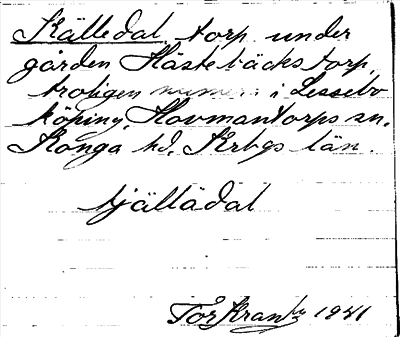 Källedal, torp under
gården Hästebäckstorp,
troligen numera i Lessebo
köping, Hovmantorps sn.
Konga hd, Krbgs län.
tjälladal
Tor Krantz 1941